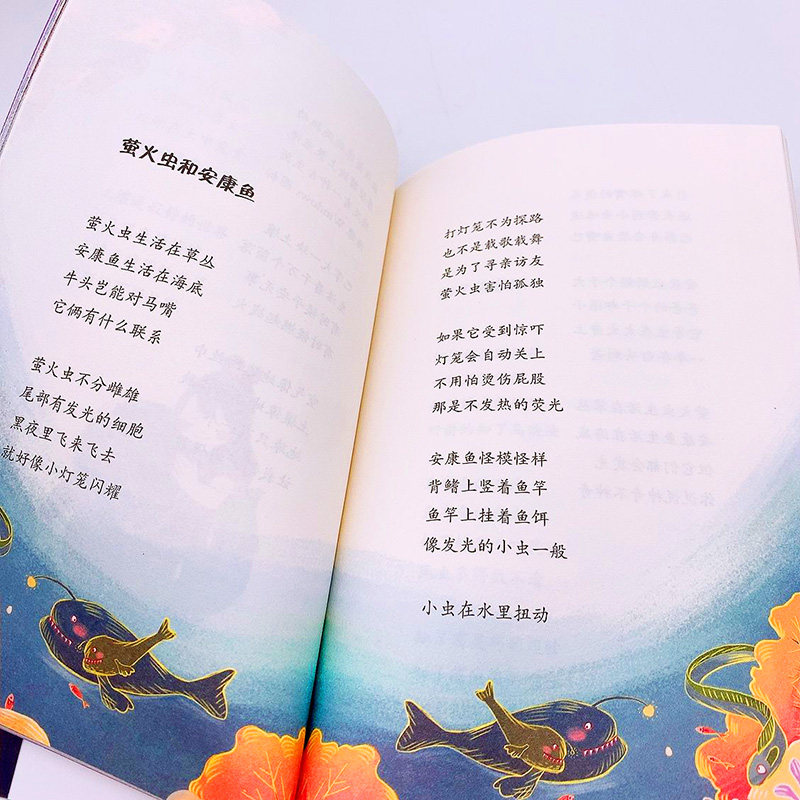 萤火虫和安康鱼
萤火虫生活在草丛
安康鱼生活在海底
牛头岂能对马嘴
它俩有什么联系
萤火虫不分雌雄
尾部有发光的细胞
黑夜里飞来飞去
就好像小灯笼闪耀
打灯笼不为探路
也不是载歌载舞
是为了寻亲访友
萤火虫害怕孤独
如果它受到惊吓
灯笼会自动关上
不用怕烫伤屁股
那是不发热的荧光
安康鱼怪模怪样
背鳍上竖着鱼竿
鱼竿上挂着鱼饵
像发光的小虫一般
小虫在水里扭动